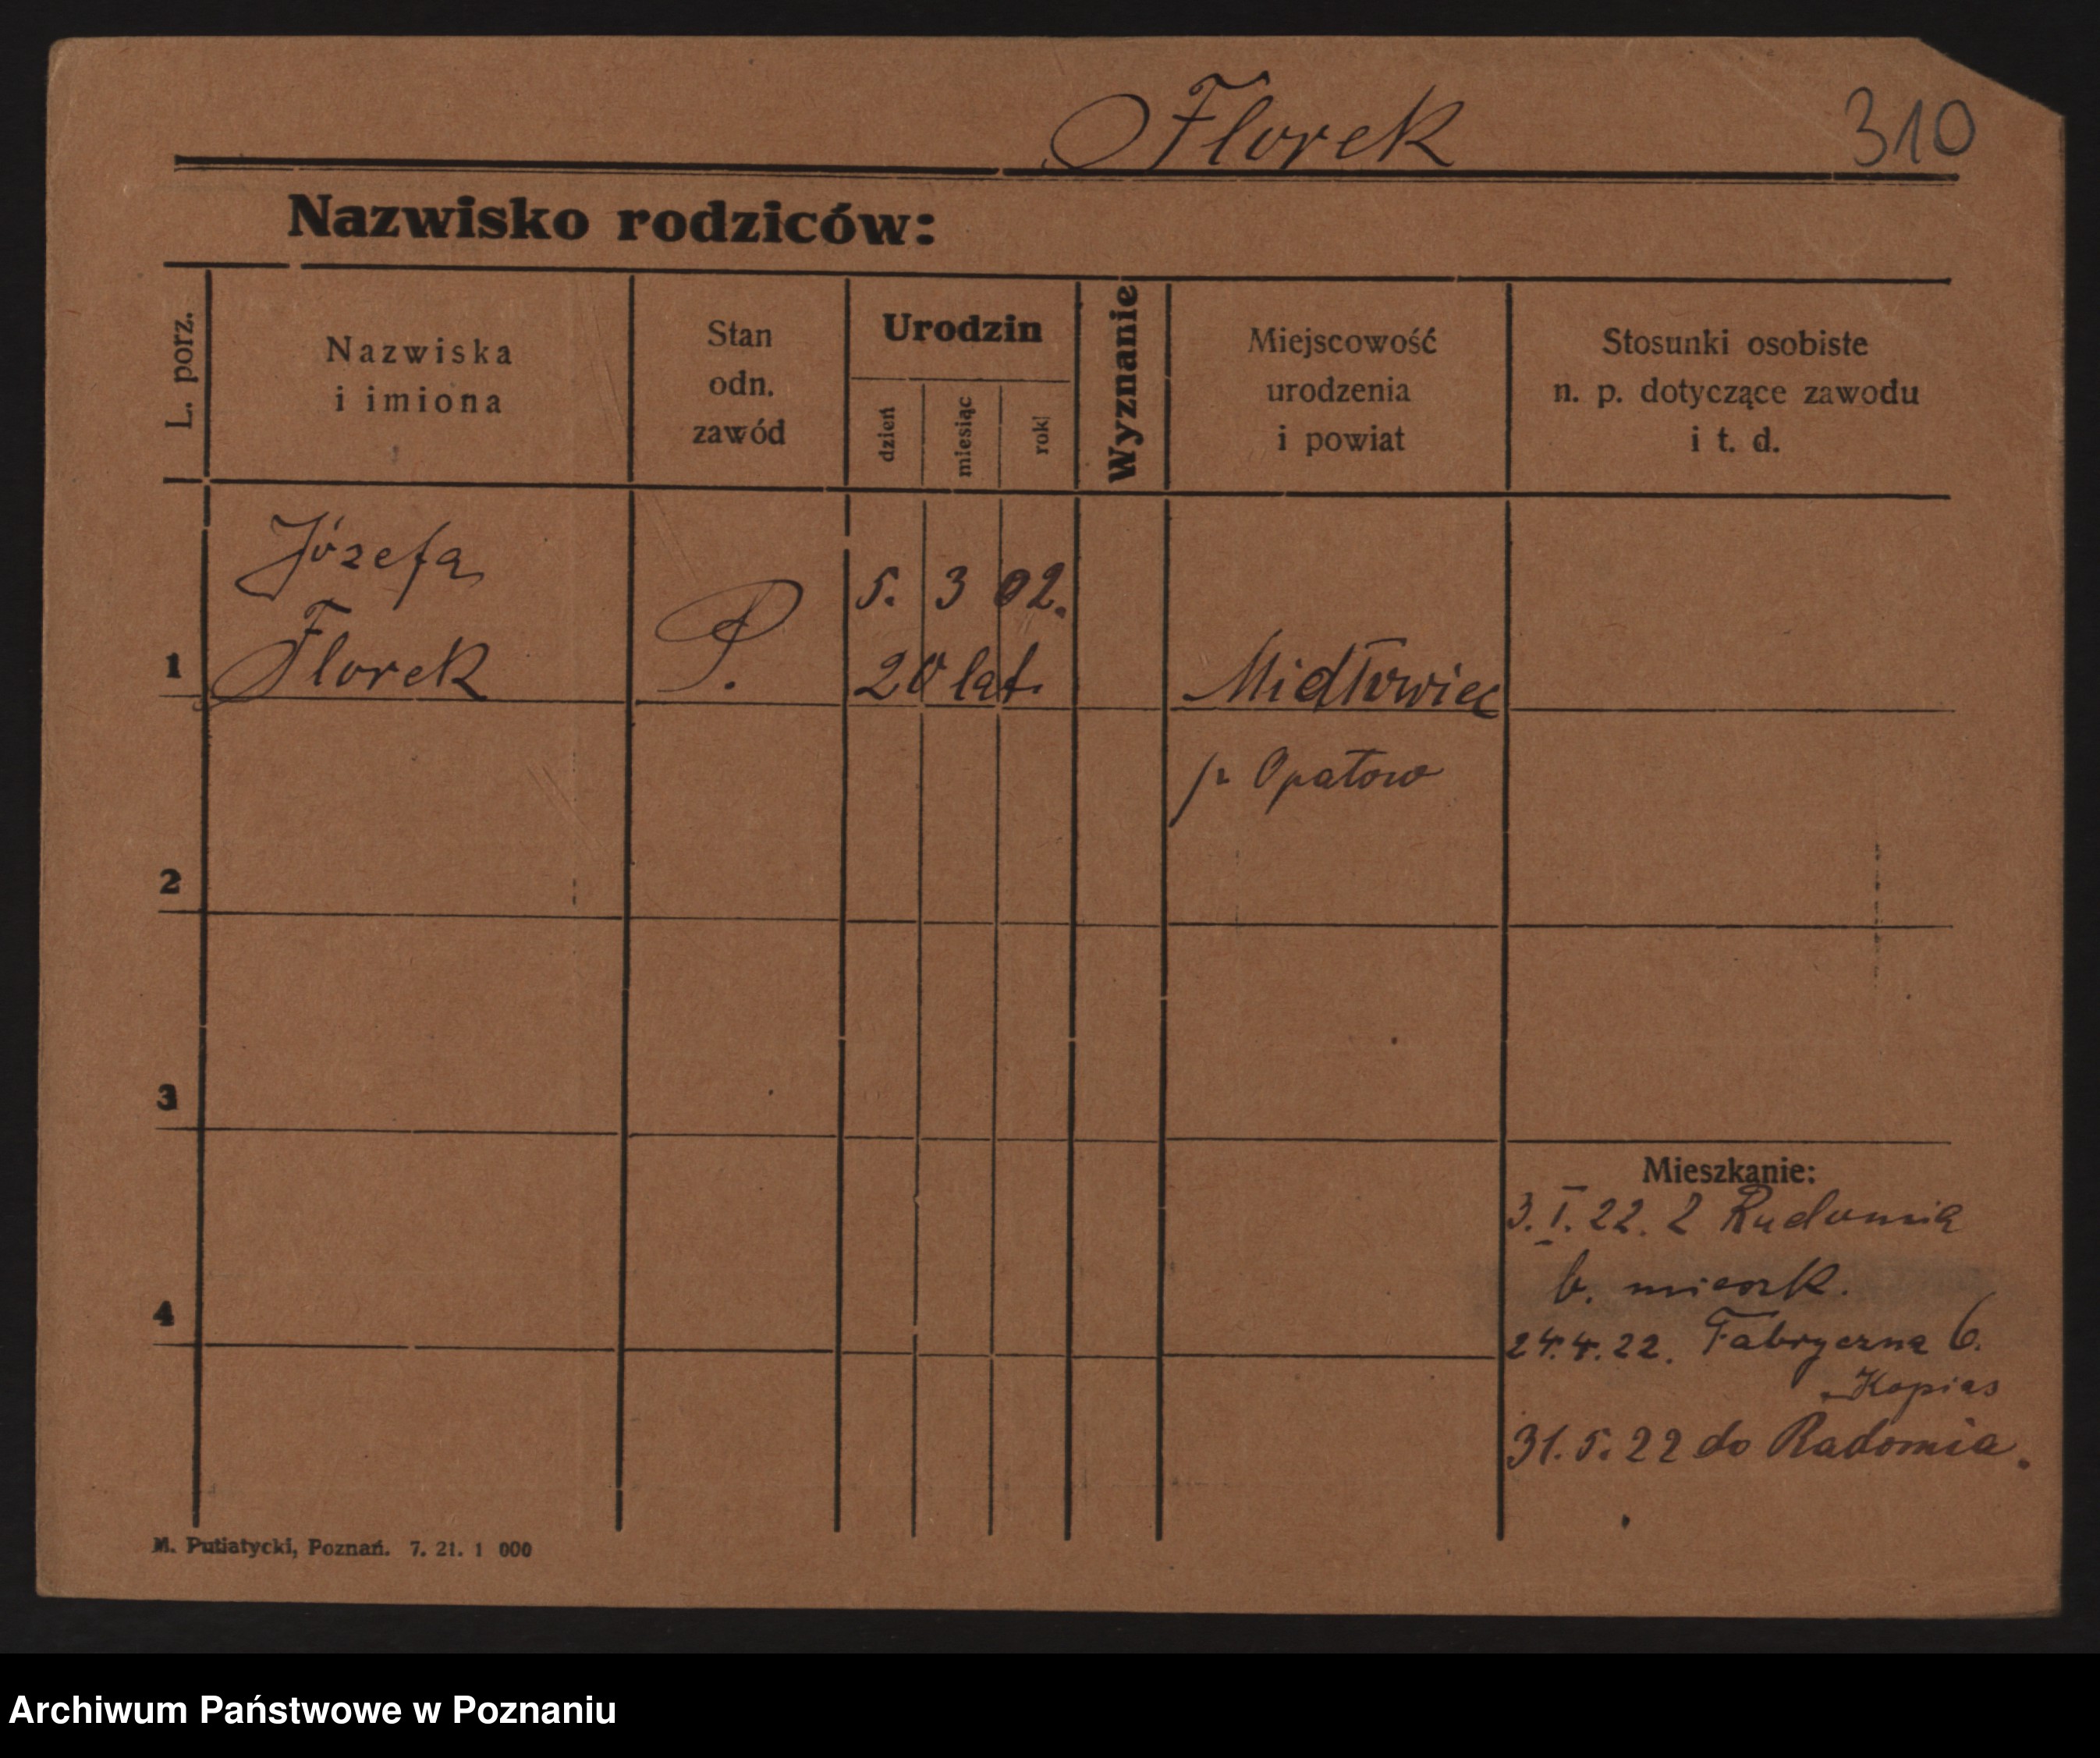 Florek
310
Nazwisko rodziców:
L. porz.
Nazwiska
i imiona
Stan
odn.
zawód
Urodzin
dzień
miesiąc
rok
Wyznanie
Miejscowość
urodzenia
i powiat
Stosunki osobiste
n. p. dotyczące zawodu
i t. d.
1
Józefa
Florek
P.
5. 3 02.
20 lat.
Midłowiec
p. Opatow
2
3
4
Mieszkanie:
3. I. 22. z Radomia
b. mieszk.
24.4.22. Fabryczna 6.
Kopias
31. 5. 22 do Radomia.
M. Putiatycki, Poznań. 7. 21. 1 000
Archiwum Państwowe w Poznaniu